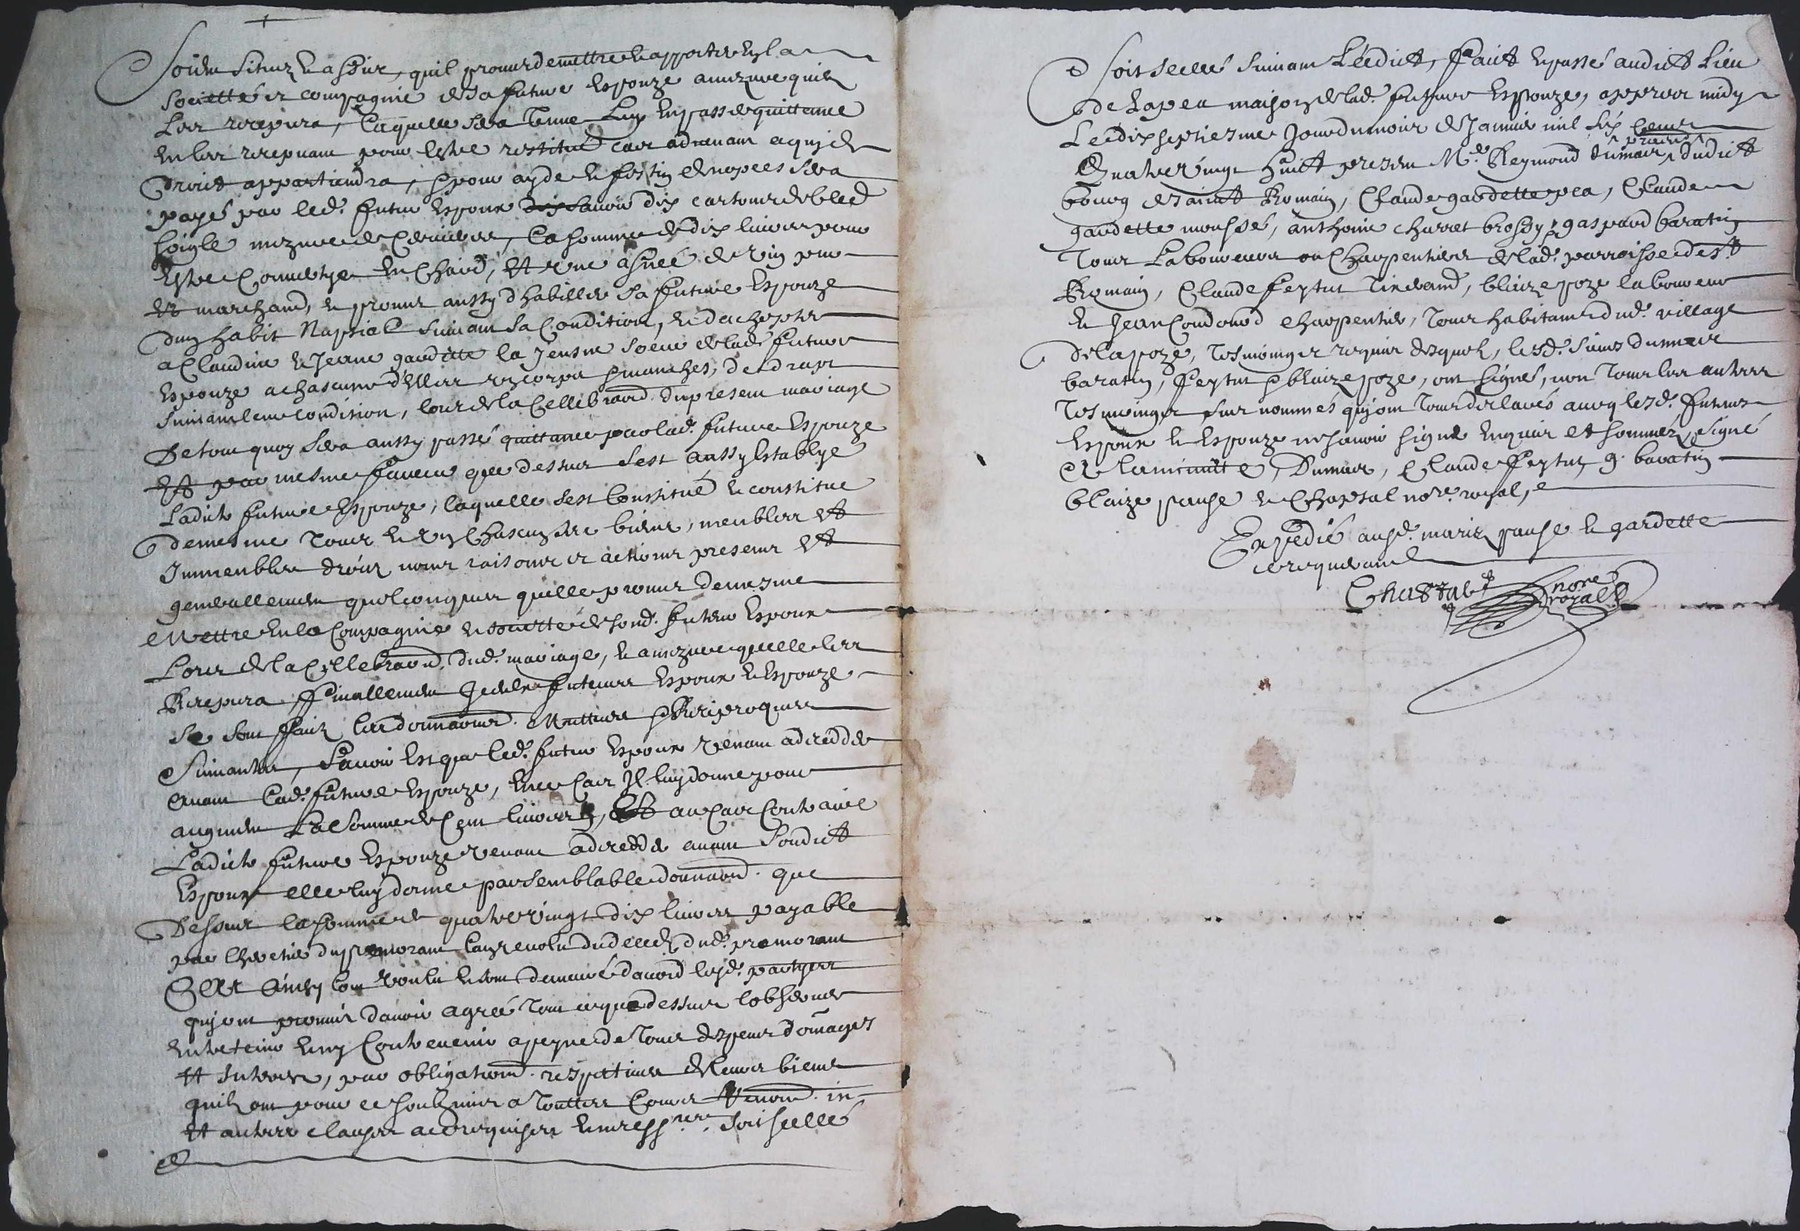 Soient situez et assis, quil promet de mettre et apporter en la
societté et compagnie de sa future Espouze a mezure quil
Les recepvra, laquelle sera tenue Luy En passer quittance
En les recepvant pour Estre restitué cas advenant a qui de
droict appartiendra, pour ayde le festin de nopces sera
payé par led. futur Espoux sçavoir dix cartons de bled
soigle mezure de la somme de dix livres pour
Estre Convertye En Chair, Et une asnée de vin pur
Et marchand, et promet aussy d'habiller sa future Espouze
dung habit Nuptial suivant sa Condition, et d'achepter
a Claudine et Jeanne gardette la jeusne soeur de lad. future
Espouze a chascune d'Elles ung corps et manches, de drapt
suivant leur condition, lors de la Cellebraon. du present mariage
De tout quoy sera aussy passé quittance par lad. future Espouze
Et par mesme faveur que dessus s'est aussy Establye
Ladicte future Espouze, laquelle s'est Constitué et constitue
de mesme tous et ung Chascungs ses biens, meubles Et
Immeubles droicts noms raisons et actions presents Et
generallement quelconques quelle promet de mesme
Mettre En la Compagnie et société de sond. futur Espoux
Lors de la Cellebraon. dud. mariage, et a mezure quelle les
Recepvra, ffinallement Iceulx futeurs Espoux et Espouze
se sont faict les donnaons. Muttueles et Reciproques
suivantes, Sçavoir Est que led. futur Espoux venant a decedder
avant lad. future Espouze, En ce Cas Il luy donne pour
augment La somme de Cent livres, Et au Cas Contraire
Ladicte future Espouze venant a decedder avant Sondict
Espoux elle luy donne par semblable donnaon. que
Dessus la somme de quatre vingt dix livres payable
par lheretier du premorant lan revolu du decedz dud. premorant
Et Ainsy lont voulu et sont demeuré d'accord lesd. partyes
quy ont promis d'avoir agreé tout ce que dessus lobserver
Entretenir et ny Contrevenir a peyne de tous despens domages
Et Interests, par obligations respectives de leurs biens
quilz ont pour ce soubzmis a touttes Cours Renon. in
Et autres clauses a ce requises et necessres. Soit seellé
Soit seellé suivant L'édict, Faict et passé audict Lieu
de Lapea maison de lad. future Espouze, appres midy
Le dix septiesme Jour du mois de Janvier mil six Cens
Quatre vingt huict present Mre. Reymond dumais prieur dudict
bourg de Sainct Romain, Claude gardette pea, Claude
gardette mousse, anthoine charet brossy, gaspard baratin
Tous Laboureurs ou Charpentiers de lad. parroisse de St
Romain, Claude feytut tisserand, blaize poze laboureur
et Jean Coudourd charpentier, tous habitants dud. village
de la poze, tesmoings requis desquels, lesd. sieurs dumais
baratin, feytut et blaize poze, ont signé, non tous les autres
tesmoings sus nommés quy ont tous declarés aveq lesd. futurs
Espoux et Espouze ne sçavoir signé Enquis et sommés, signé
A La minutte, Dumais, Claude feytut, g. baratin
blaize pause et Chastal nore. royal,
Expedié ausd. mariez pause et gardette
ce requerant
Chastal nore
royal